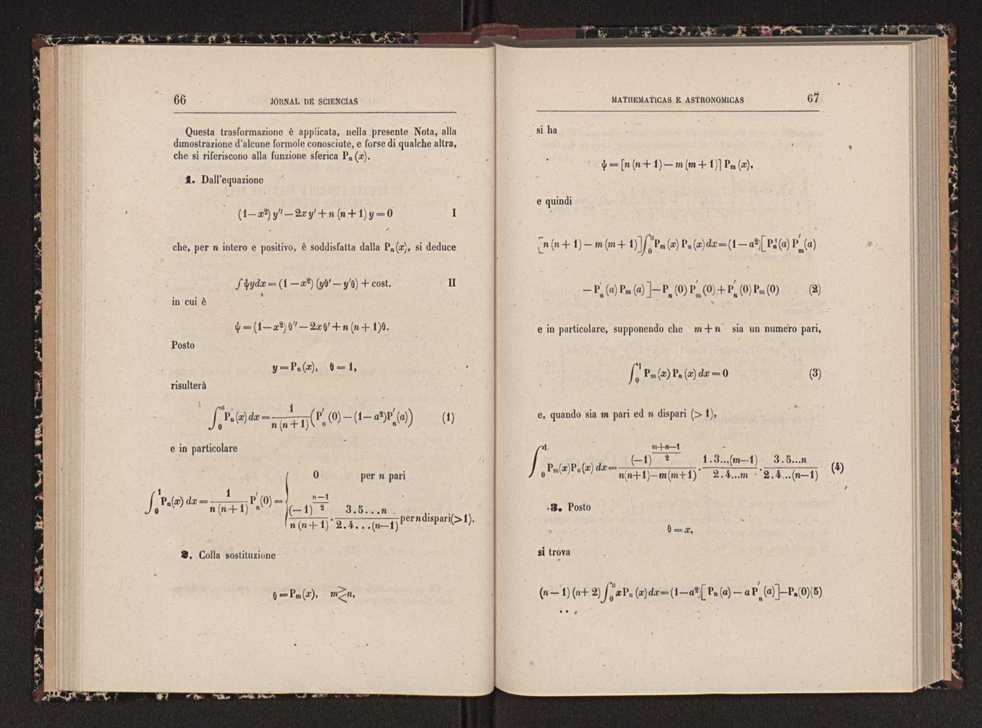 66 JORNAL DE SCIENCIAS
Questa trasformazione è applicata, nella presente Nota, alla
dimostrazione d'alcune formole conosciute, e forse di qualche altra,
che si riferiscono alla funzione sferica Pₙ (x).
1. Dall'equazione
(1—x²) y'' — 2x y' + n (n + 1) y = 0 I
che, per n intero e positivo, è soddisfatta dalla Pₙ(x), si deduce
∫ψydx = (1 — x²) (yϑ' — y'ϑ) + cost. II
in cui è
ψ = (1—x²) ϑ'' — 2x ϑ' + n (n + 1)ϑ.
Posto
y = Pₙ(x), ϑ = 1,
risulterà
∫₀ᵃ Pₙ(x) dx = 1/(n (n + 1)) (P'ₙ (0) — (1— a²)P'ₙ(a)) (1)
e in particolare
∫₀¹ Pₙ(x) dx = 1/(n (n + 1)) P'ₙ(0) = { 0 per n pari
(—1)^((n—1)/2)/(n (n + 1)) . 3.5...n/2.4...(n—1) per n dispari(>1).
2. Colla sostituzione
ϑ = Pₘ(x), m ≷ n,
MATHEMATICAS E ASTRONOMICAS 67
si ha
ψ = [n (n + 1) — m (m + 1)] Pₘ (x),
e quindi
[n (n + 1) — m (m + 1)] ∫₀ᵃ Pₘ (x) Pₙ (x) dx = (1 — a²) [Pₙ(a) P'ₘ(a)
— P'ₙ (a) Pₘ (a)] — Pₙ (0) P'ₘ (0) + P'ₙ (0) Pₘ (0) (2)
e in particolare, supponendo che m + n sia un numero pari,
∫₀¹ Pₘ (x) Pₙ (x) dx = 0 (3)
e, quando sia m pari ed n dispari (> 1),
∫₀¹ Pₘ(x)Pₙ(x) dx = (—1)^((m+n—1)/2)/(n(n+1)—m(m+1)) . 1.3...(m—1)/2.4...m . 3.5...n/2.4...(n—1) (4)
3. Posto
ϑ = x,
si trova
(n — 1) (n + 2) ∫₀ᵃ x Pₙ (x) dx = (1—a²) [Pₙ (a) — a P'ₙ (a)] — Pₙ(0) (5)